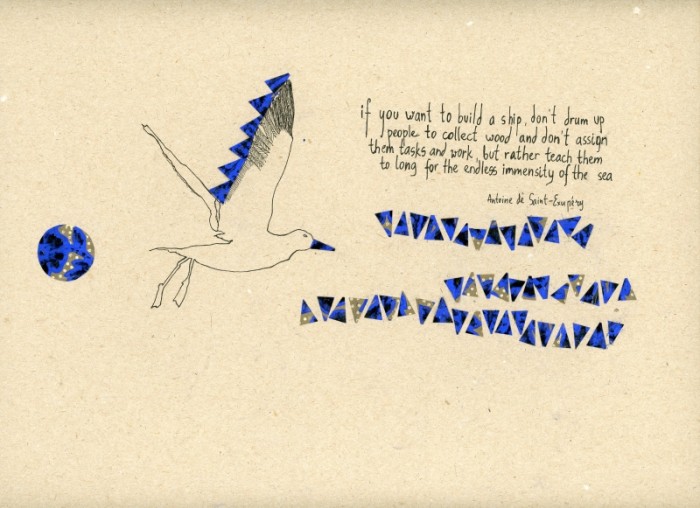 if you want to build a ship, don't drum up
people to collect wood and don't assign
them tasks and work, but rather teach them
to long for the endless immensity of the sea
Antoine de Saint-Exupéry